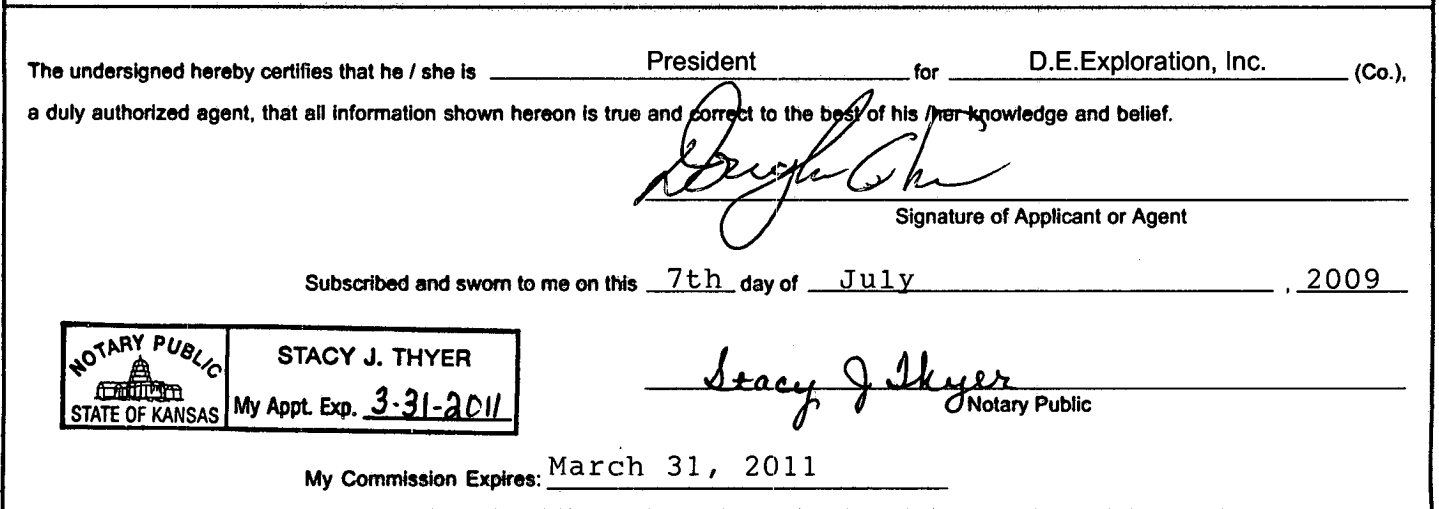 The undersigned hereby certifies that he / she is President for D.E.Exploration, Inc. (Co.),
a duly authorized agent, that all information shown hereon is true and correct to the best of his /her knowledge and belief.
Signature of Applicant or Agent
Subscribed and sworn to me on this 7th day of July , 2009
NOTARY PUBLIC
STATE OF KANSAS
STACY J. THYER
My Appt. Exp. 3-31-2011
Stacy J Thyer
Notary Public
My Commission Expires: March 31, 2011